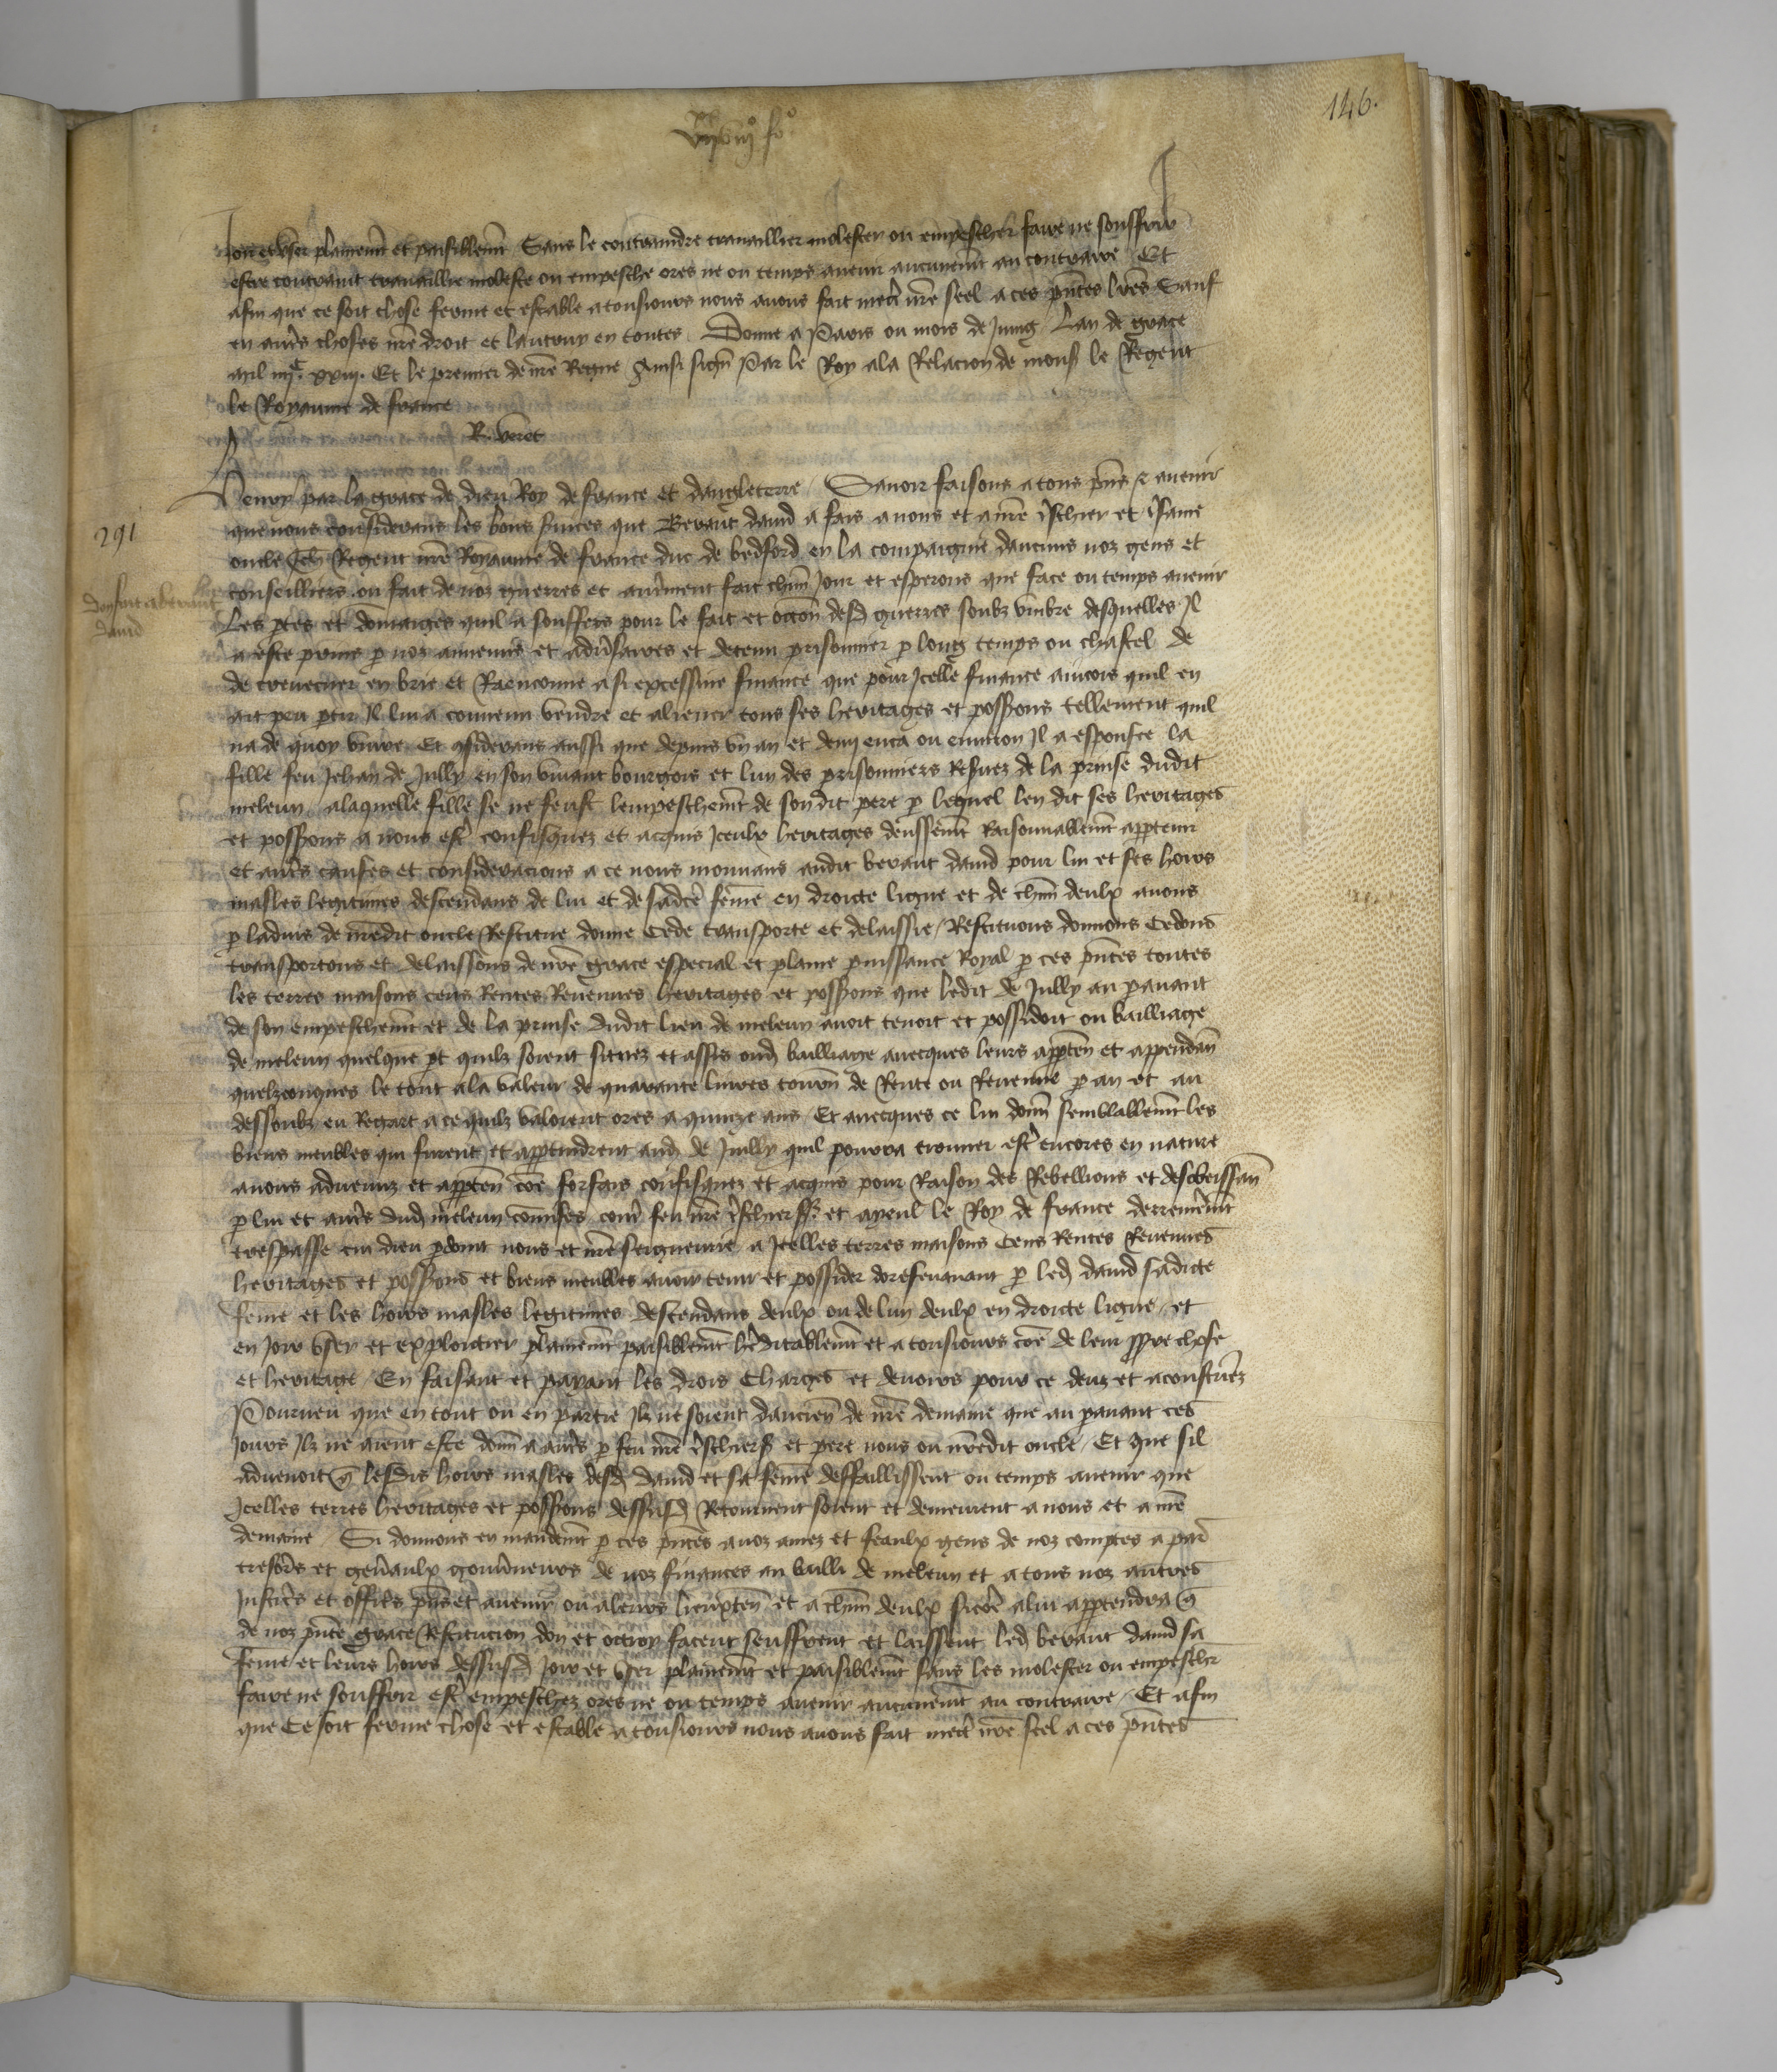 146.
Joir et user plainemt et paisiblemt Sans le contraindre travaillier molester ou empescher faire ne souffrir
estre contraint travaillie moleste ou empesche ores ne ou temps avenir aucunemt au contraire Et
afin que ce soit chose ferme et estable a tousiours nous avons fait mectre nre seel a ces pntes lres Sauf
en autres choses nre droit et lautruy en toutes Donne a Paris ou mois de Juing Lan de grace
mil iiiic xxiii. Et le premier de nre Regne Ainsi signe Par le Roy a la Relacion de mons le Regent
le Royaume de france
R. veret
291
Don fait a berant
david
Henry par la grace de dieu Roy de france et dangleterre Savoir faisons a tous pns et avenir
que nous considerans les bons services que Berant david a fais a nous et a nre treschier et tresame
oncle Jeh Regent nre Royaume de france duc de bedford en la compaignie daucuns noz gens et
conseilliers ou fait de noz guerres et autrement fait chun Jour et esperons que face ou temps avenir
Les ptes et dommaiges quil a souffers pour le fait et occon desd guerres soubz umbre desquelles Il
a este prins p noz annemis et adversaires et detenu prisonnier p long temps ou chastel de
de crevecuer en brie et Raenconne a si excessive finance que pour Icelle finance aincois quil en
ait peu ptir Il lui a convenu vendre et aliener tous ses heritages et possions tellement quil
na de quoy vivre Et considerans aussi que depuis un an et demj enca ou environ Il a espousee la
fille feu Jehan de Jully en son vivant bourgois et lun des prisonniers Reservez de la prinse dudit
meleun a laquelle fille se ne feust lempeschemt de son dit pere p lequel len dit ses heritages
et possions a nous estre confisquez et acquis Iceulx heritages deussent Raisonnablemt appartenir
et autres causes et consideracions a ce nous mouvans audit berant david pour lui et ses hoirs
masles legitimes descendans de lui et de sadicte feme en droicte ligne et de chun deulx avons
p ladvis de nredit oncle Restitue donne Cede transporte et delaissie Restituons donnons Cedons
transportons et delaissons de nre grace especial et plaine puissance Royal p ces pntes toutes
les terres maisons cens Rentes Revenues heritages et possions que ledit de Jully au pavant
de son empeschemt et de la prinse dudit lieu de meleun avoit tenoit et possidoit ou bailliage
de meleun quelque pt quilz soient situez et assis oud bailliage avecques leurs apparten et appendan
quelzconques le tout a la valeur de quarante livres tourn de Rente ou Revenue p an et au
dessoubz eu Regart a ce quilz valoient ores a quinze ans Et avecques ce lui donn semblablemt les
biens meubles qui furent et appartindrent aud de Juilly quil pourra trouver estre encores en nature
a nous advenuz et apparten coe forfais confisquez et acquis pour Raison des Rebellions et desobeissan
p lui et autres dud meleun comises contre feu nre treschier sr et ayeul le Roy de france derreinemt
trespasse cui dieu pdoint nous et nre seigneurie a Icelles terres maisons Cens Rentes Revenues
heritages et possions et biens meubles avoir tenir et possider doresenavant p led david sadicte
feme et les hoirs masles legitimes descendans deulx ou de lun deulx en droicte ligne et
en Joir user et exploictier plainemt paisiblemt heritablemt et a tousiours coe de leur ppre chose
et heritage En faisant et payant les drois Charges et devoirs pour ce deuz et acoustumez
Pourveu que en tout ou en partie Ilz ne soient dancien de nre demaine que au pavant ces
Jours Ilz ne aient este donn a autres p feu nre treschier sr et pere nous ou nredit oncle Et que sil
advenoit q lesdis hoirs masles desd david et sa feme deffaillissent ou temps avenir que
Icelles terres heritages et possions dessusd Retournent soient et demeurent a nous et a nre
demaine Si donnons en mandemt p ces pntes a noz amez et feaulx gens de noz comptes a par
tresors et generaulx gouverneurs de noz finances au bailli de meleun et a tous noz autres
Justicrs et officrs pns et avenir ou a leurs lieuxten et a chun deulx sicoe a lui appartendra q
de noz pnte grace Restitucion don et octroy facent seuffrent et laissent led berant david sa
feme et leurs hoirs dessusd Joir et user plainemt et paisiblemt sans les molester ou empeschr
faire ne souffrir estre empeschez ores ne ou temps avenir aucunemt au contraire Et afin
que Ce soit ferme chose et estable a tousiours nous avons fait mectre nre seel a ces pntes